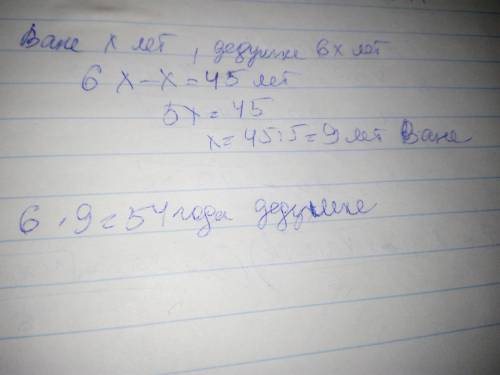 Ване x лет, дедушке 6x лет
6x-x=45 лет
5x=45
x=45:5=9 лет Ване
6·9=54 года дедушке